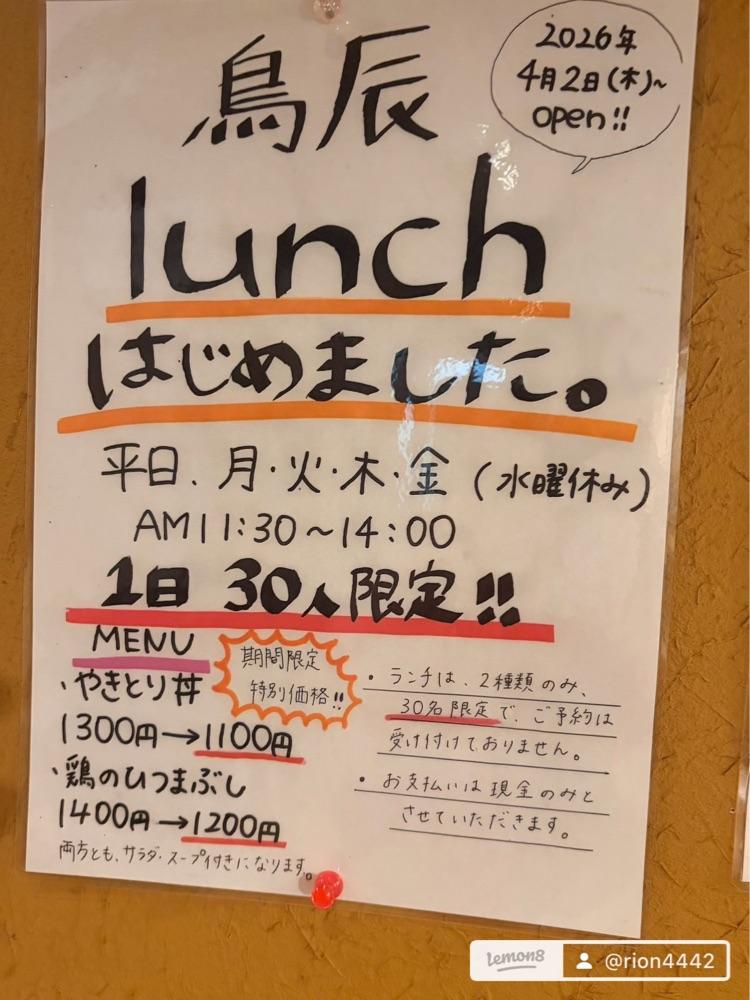 鳥辰
2026年
4月2日(木)~
open!!
lunch
はじめました。
平日、月・火・木・金 (水曜休み)
AM11:30～14:00
1日 30人限定!!
MENU
期間限定
特別価格!!
・やきとり丼
1300円→1100円
・鶏のひつまぶし
1400円→1200円
両方とも、サラダ・スープ付きになります。
・ランチは、2種類のみ、
30名限定で、ご予約は
受け付けておりません。
・お支払いは現金のみと
させていただきます。
Lemon8
@rion4442